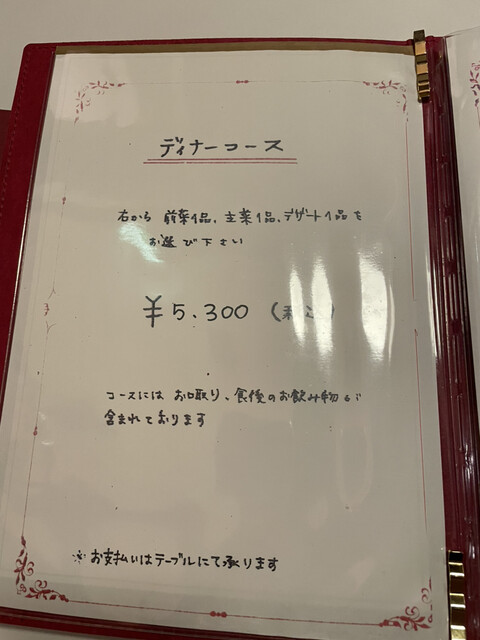 ディナーコース
右から 前菜1品、主菜1品、デザート1品を
お選び下さい
¥5,300 (税込)
コースには お口取り、食後のお飲み物が
含まれております
※お支払いはテーブルにて承ります